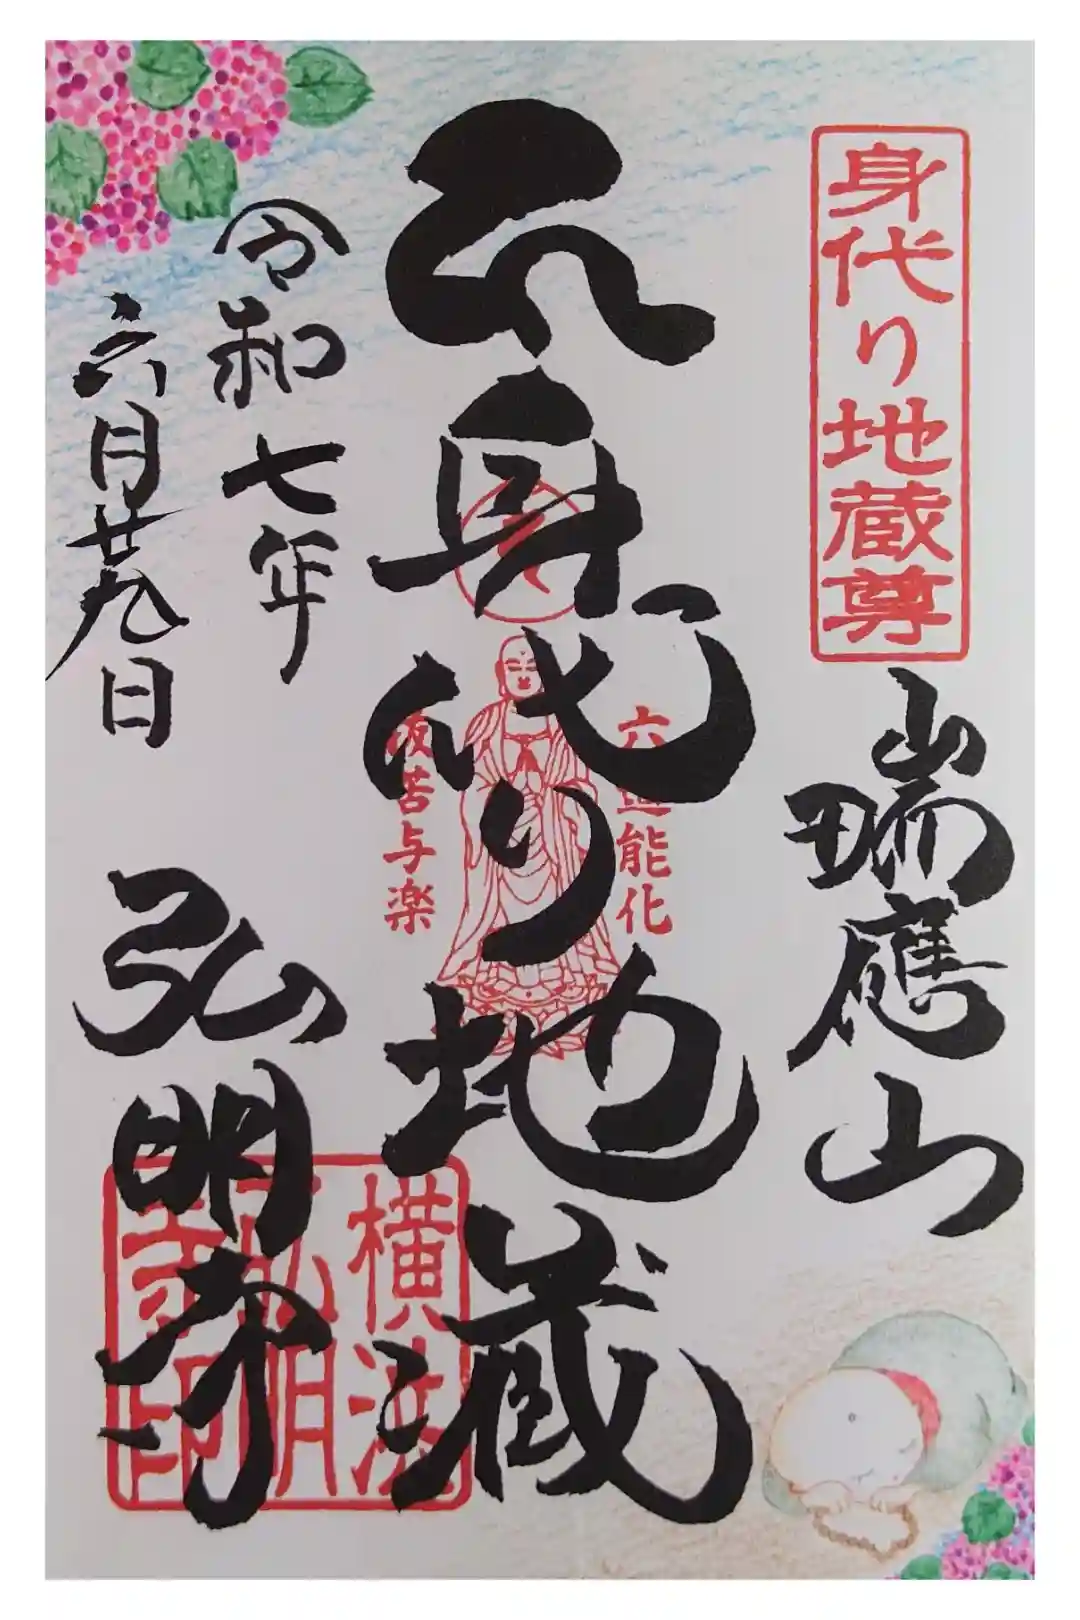 身代り地蔵尊
瑞應山
身代り地蔵
六道能化
抜苦与楽
令和七年
六月廿九日
弘明寺
横浜
弘明
寺印